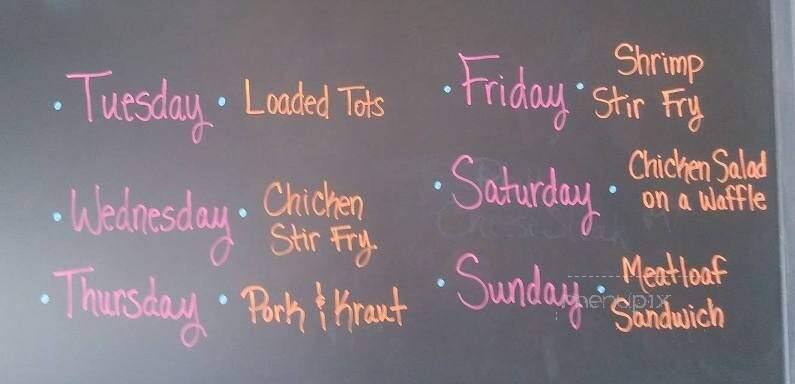 • Tuesday • Loaded Tots
• Wednesday • Chicken
Stir Fry.
• Thursday • Pork & Kraut
• Friday • Shrimp
Stir Fry
• Saturday • Chicken Salad
on a Waffle
• Sunday • Meatloaf
Sandwich
menupix